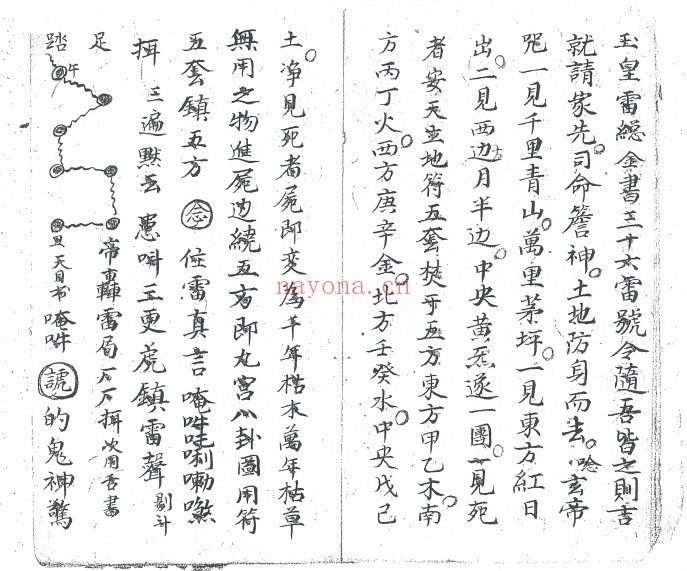 玉皇雷總金書三十六雷號令隨吾皆之則吉
就請家先司命簷神土地防身而去唸玄帝
咒一見千里青山萬里茅坪一見東方紅日
出二見西边月半边中央黃炁遂一團一見死
者安天立地符五套焚于五方東方甲乙木南
方丙丁火西方庚辛金北方壬癸水中央戊己
土净見死者屍即变為千年楛衣萬年枯草
無用之物進屍边繞五方即九宮八卦圖用符
五套鎮五方 念 住雷真言唵吽吐唎嘞煞
挕 三遍默云 三更 鎮雷聲 剔斗
足 帝轟雷局 挕次用吉書
踏 午 丑 天目书 唵吽 諕 的鬼神驚
nayona.cn